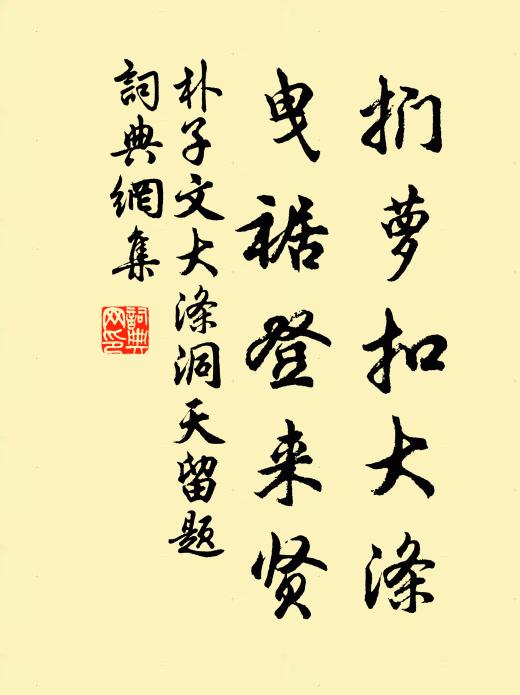 扪萝扣大涤
曳裾登来贤
朴子文大涤洞天留题
詞典網集
詞典网印